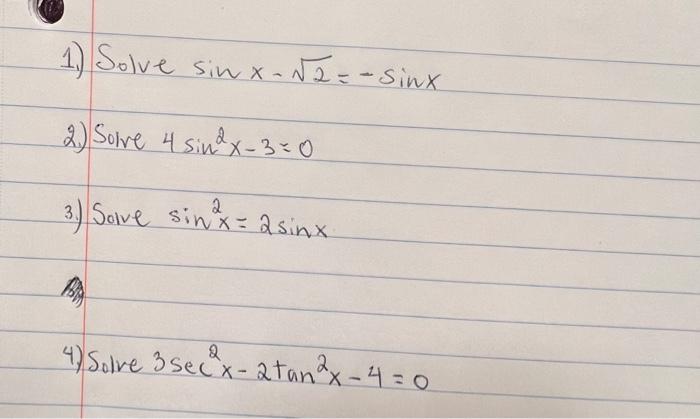 1.) Solve sin x - √2 = - sinx
2.) Solve 4 sin²x - 3 = 0
3.) Solve sin²x = 2 sinx
4.) Solve 3 sec²x - 2tan²x - 4 = 0